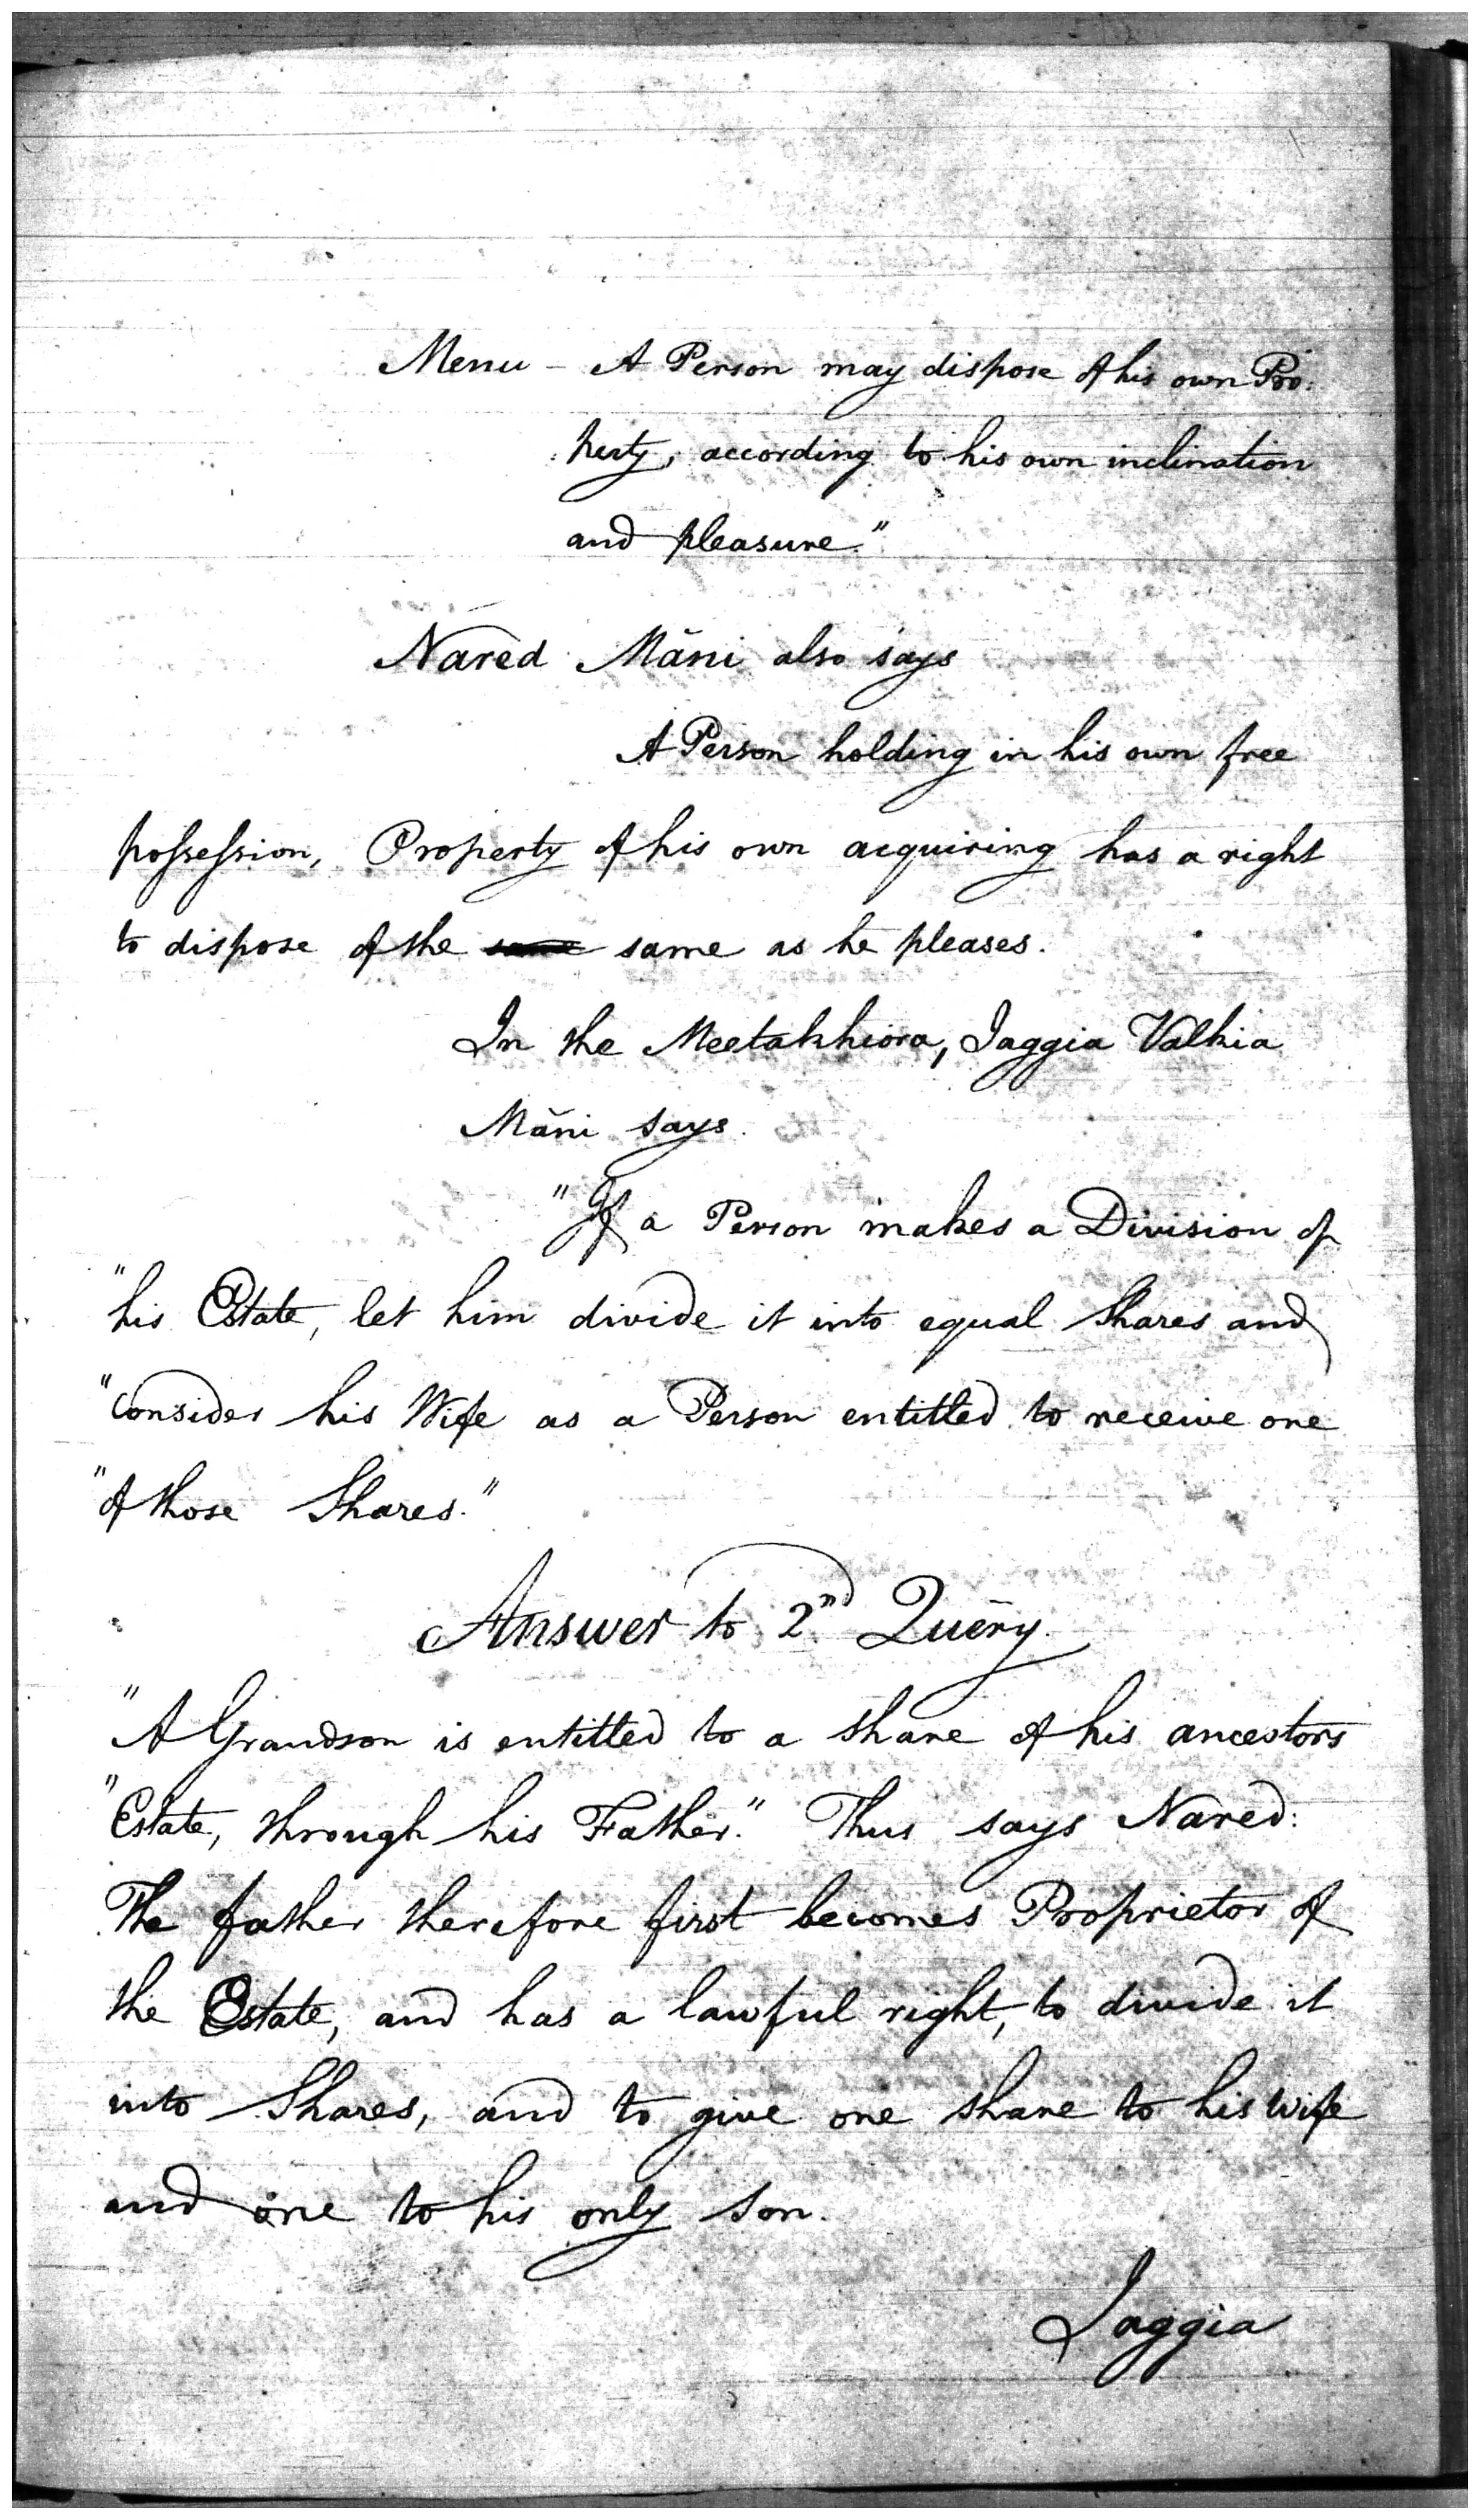 Menu - A Person may dispose of his own Pro:
:perty, according to his own inclination
and pleasure."
Nared Măni also says
A Person holding in his own free
possession, Property of his own acquiring has a right
to dispose of the same same as he pleases.
In the Meetakhiora, Jaggia Valkia
Măni says.
"If a Person makes a Division of
"his Estate, let him divide it into equal Shares and
"consider his Wife as a Person entitled to receive one
"of those Shares."
Answer to 2nd Query.
"A Grandson is entitled to a share of his ancestors
"Estate, through his Father." Thus says Nared:
The father therefore first becomes Proprietor of
the Estate, and has a lawful right, to divide it
into Shares, and to give one share to his Wife
and one to his only son.
Jaggia